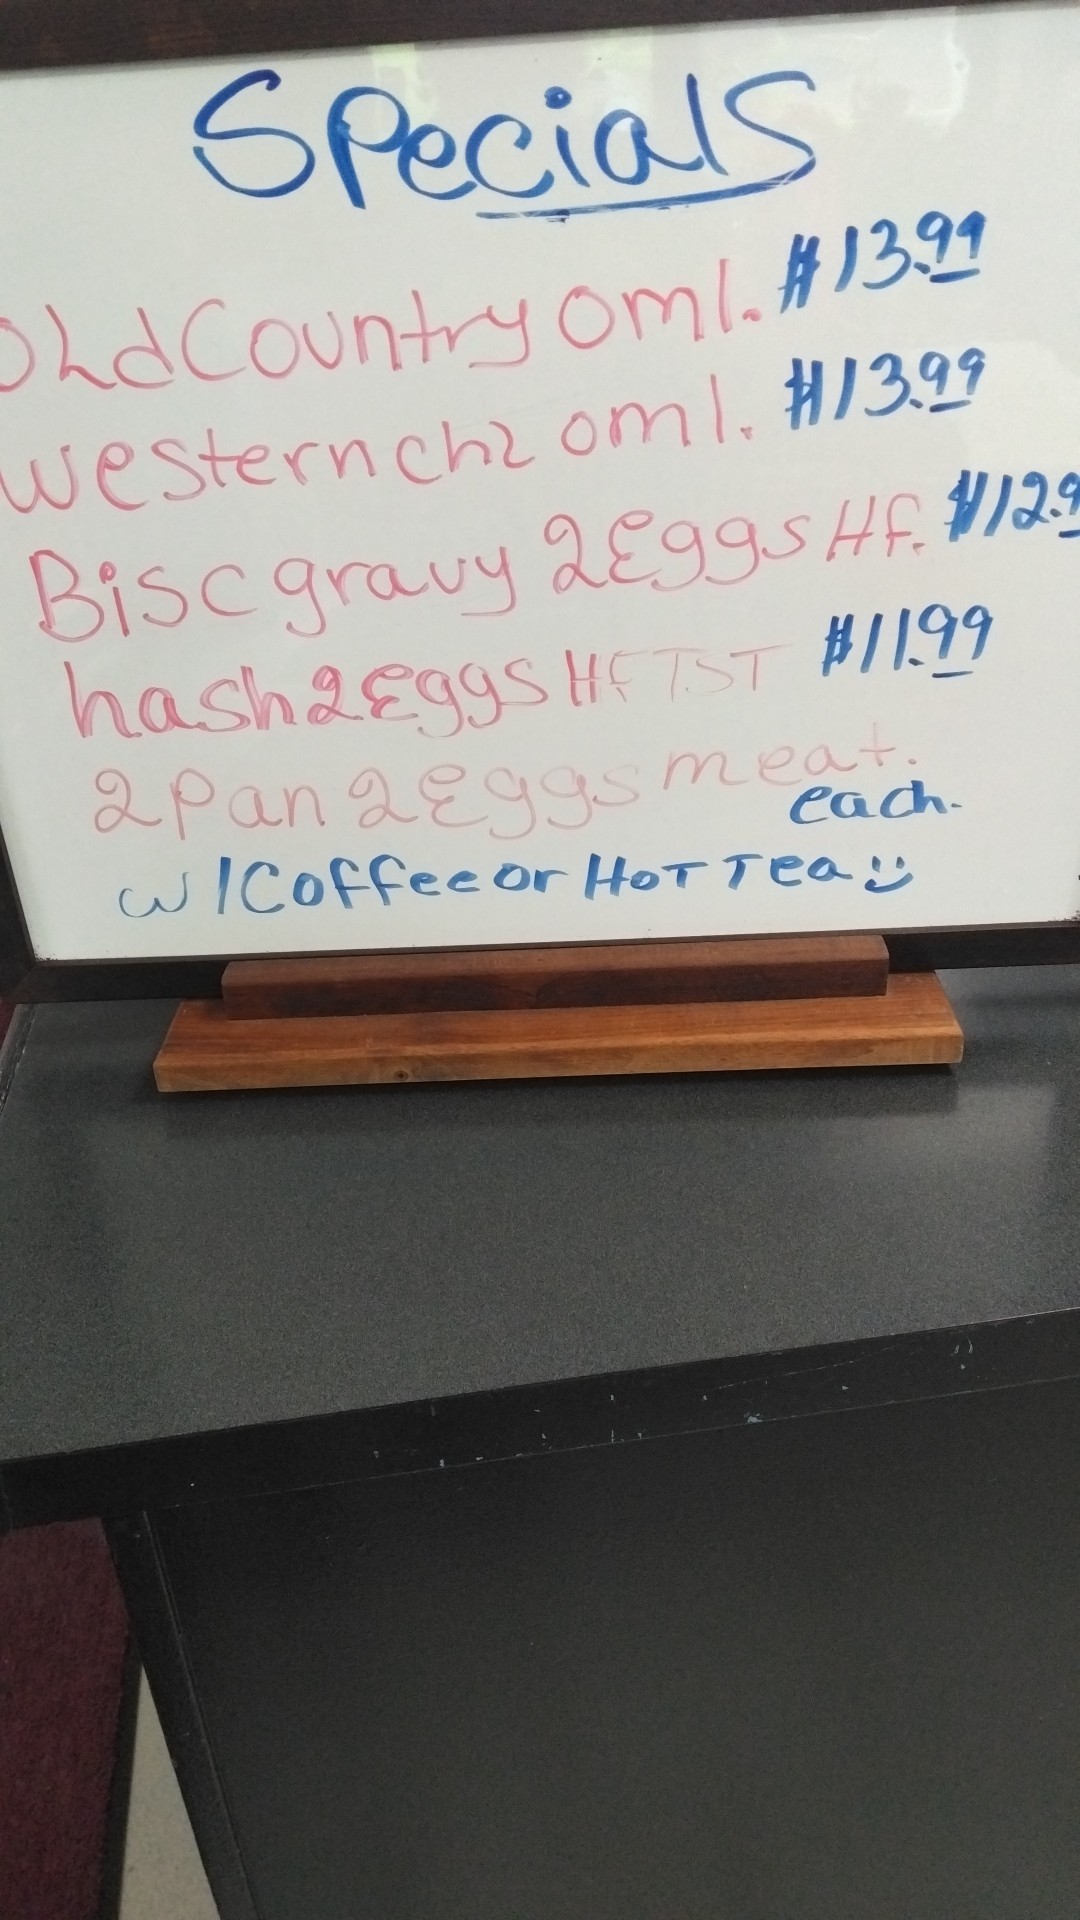 Specials
OLdCountry oml. $13.99
westernchz oml. $13.99
Bisc gravy 2Eggs Hf. $12.9
hash2Eggs HF TST $11.99
2Pan 2Eggs meat.
each.
w/Coffee or HOT Tea :)